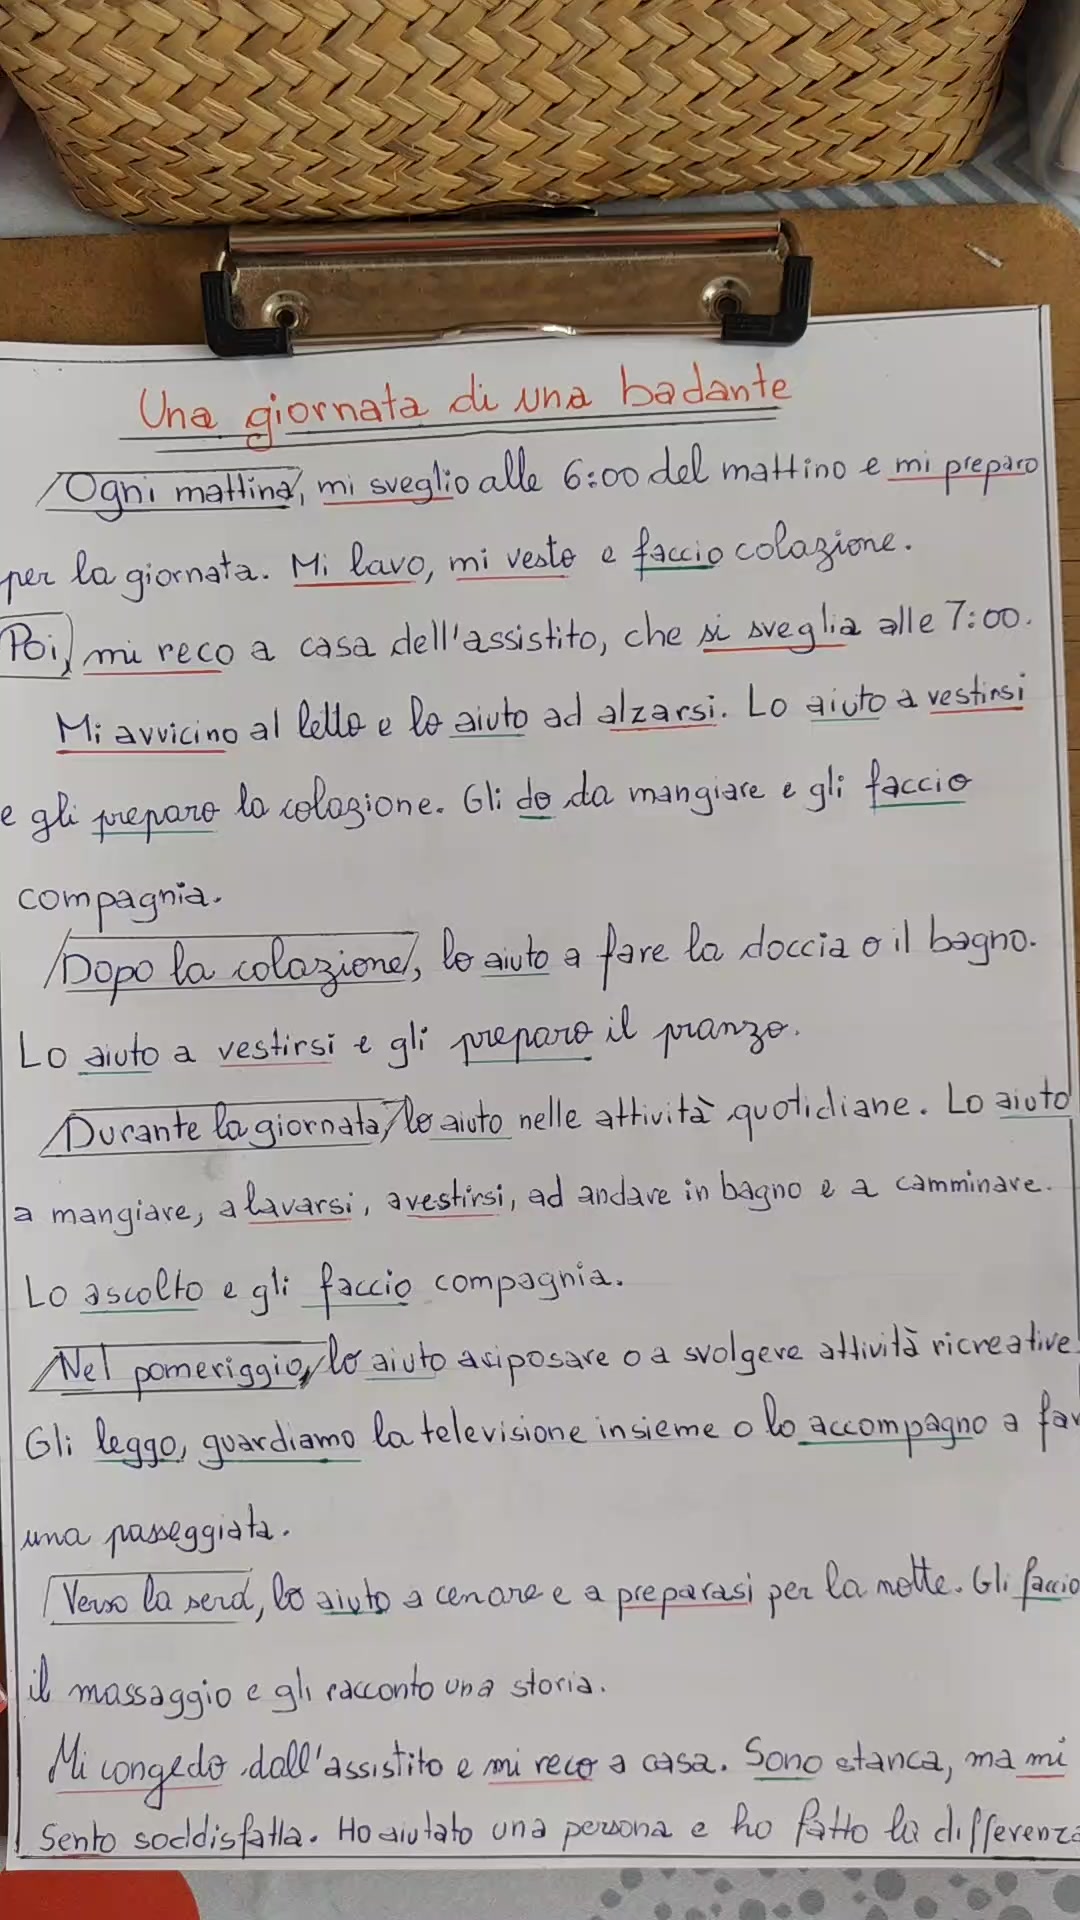 Una giornata di una badante
Ogni mattina, mi sveglio alle 6:00 del mattino e mi preparo
per la giornata. Mi lavo, mi vesto e faccio colazione.
Poi, mi reco a casa dell'assistito, che si sveglia alle 7:00.
Mi avvicino al letto e lo aiuto ad alzarsi. Lo aiuto a vestirsi
e gli preparo la colazione. Gli do da mangiare e gli faccio
compagnia.
Dopo la colazione, lo aiuto a fare la doccia o il bagno.
Lo aiuto a vestirsi e gli preparo il pranzo.
Durante la giornata, lo aiuto nelle attività quotidiane. Lo aiuto
a mangiare, a lavarsi, a vestirsi, ad andare in bagno e a camminare.
Lo ascolto e gli faccio compagnia.
Nel pomeriggio, lo aiuto a riposare o a svolgere attività ricreative.
Gli leggo, guardiamo la televisione insieme o lo accompagno a far
una passeggiata.
Verso la sera, lo aiuto a cenare e a preparasi per la notte. Gli faccio
il massaggio e gli racconto una storia.
Mi congedo dall'assistito e mi reco a casa. Sono stanca, ma mi
sento soddisfatta. Ho aiutato una persona e ho fatto la differenza